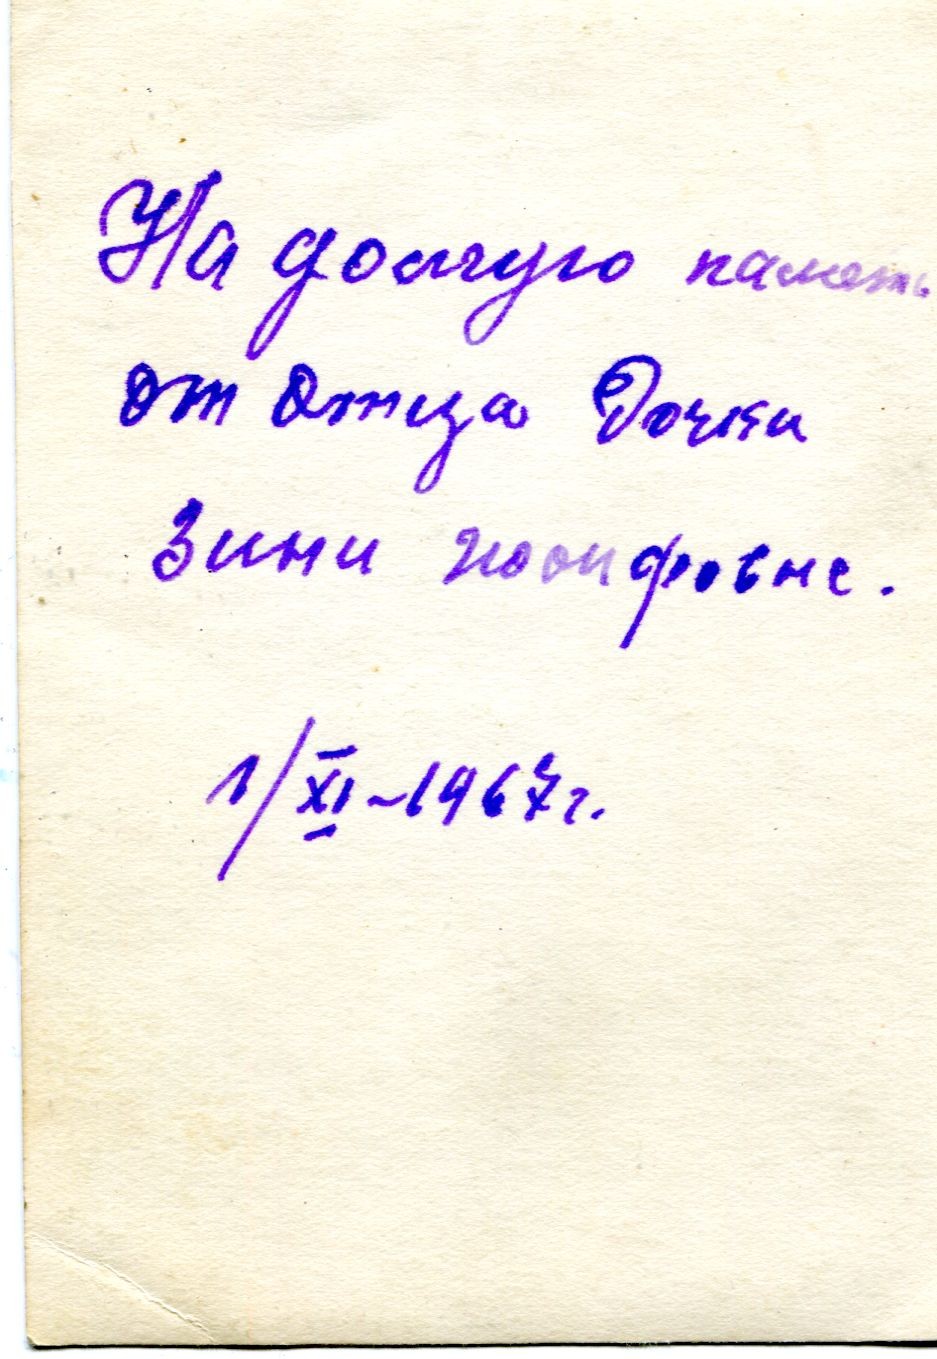 На долгую паметь
от Отца Дочки
Зини Иосифовне.
1/XI-1967г.